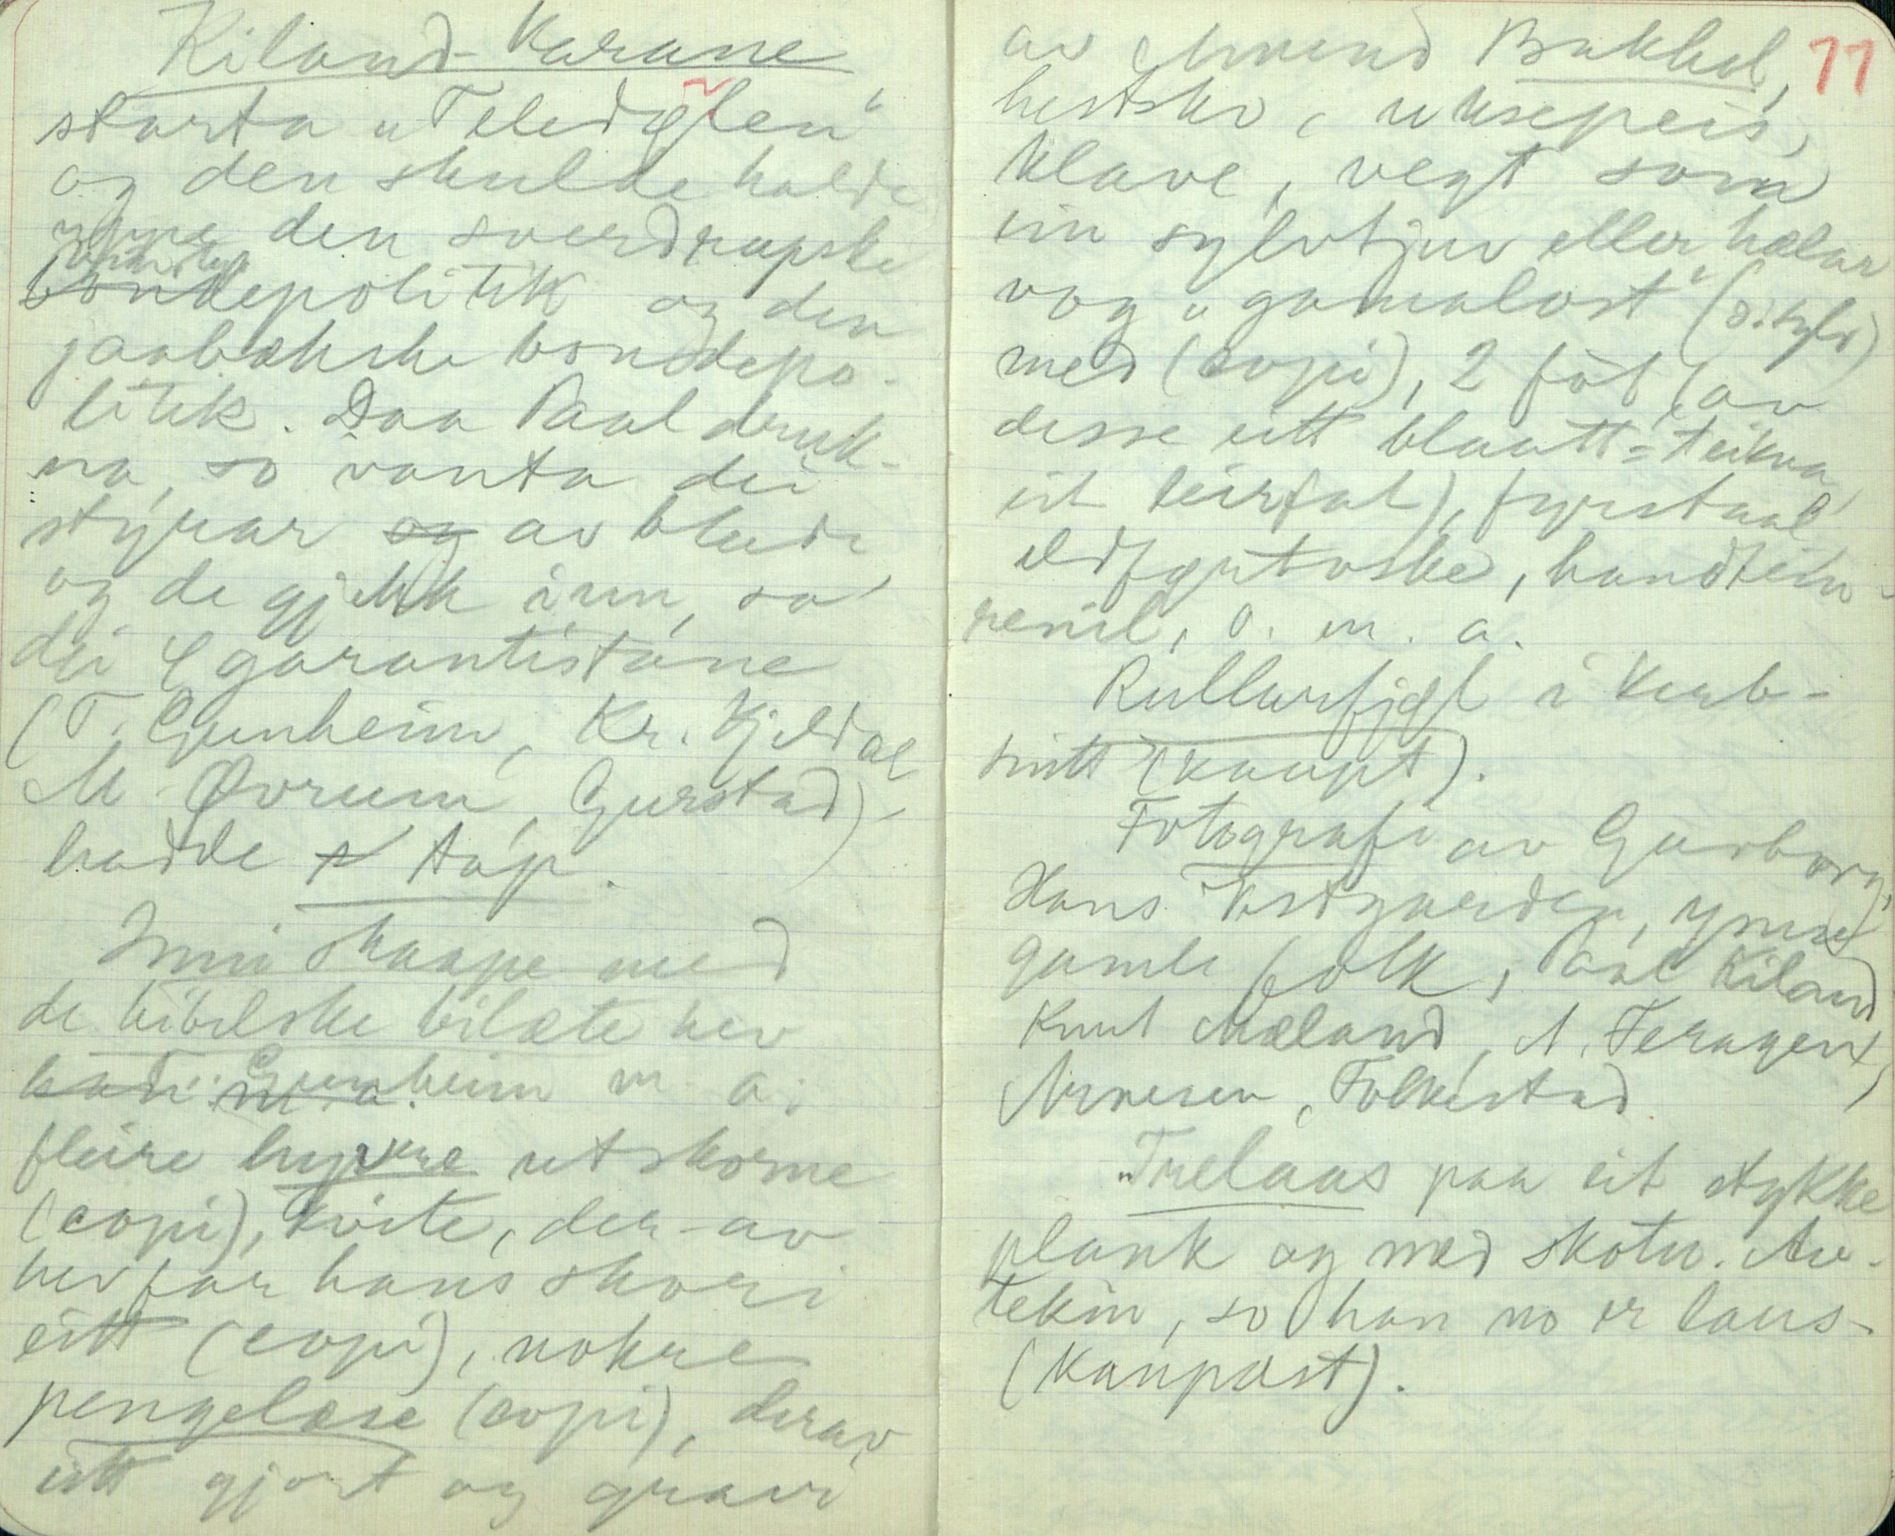 Kiland-Karane
starta "Teledølen"
og den skulde halde
uppe den sverdrupske
venstre
bondepolitik og den
jaabækske bondepo-
litik. Daa Paal druk-
na, so vanta dei
styrar og av blade
og de gjekk inn, so
dei 4 garantistane
(T. Gjenheim, Kr. Kjeldal
M Øvrum, Gjerstad)
hadde tap.
Inni skaape med
de bibelske bilæte hev
Gjenheim m. a.
fleire hyvre utskorne
(copi), kvite, der-av
hev far hans skori
eitt (copi), nokre
pengelæse (copi), derav
eitt gjort og gravi
11
av Amund Bakhel,
hestsko, uksepeis,
klave, vegt som
ein sylvtjuv eller hælar
vog "gamalost" (o: sylv)
med (copi), 2 fòt (av
desse eitt blaatt = teikna
eit leirfat), fyrstaal
eldfyrtøske, handtein-
renil, o. m. a.
Rullurfjøl i karb-
snitt (kaupt).
Fotografi av Gunborg,
Hans Vestgarden, ymse
gamle folk, Paal Kiland
Knut Mæland, A. Feragen,
Arnesen, Folkestad
"Trelaas paa eit stykke
plank og med skotu. Av-
tekin, so han no er laus-
(Kanpast).